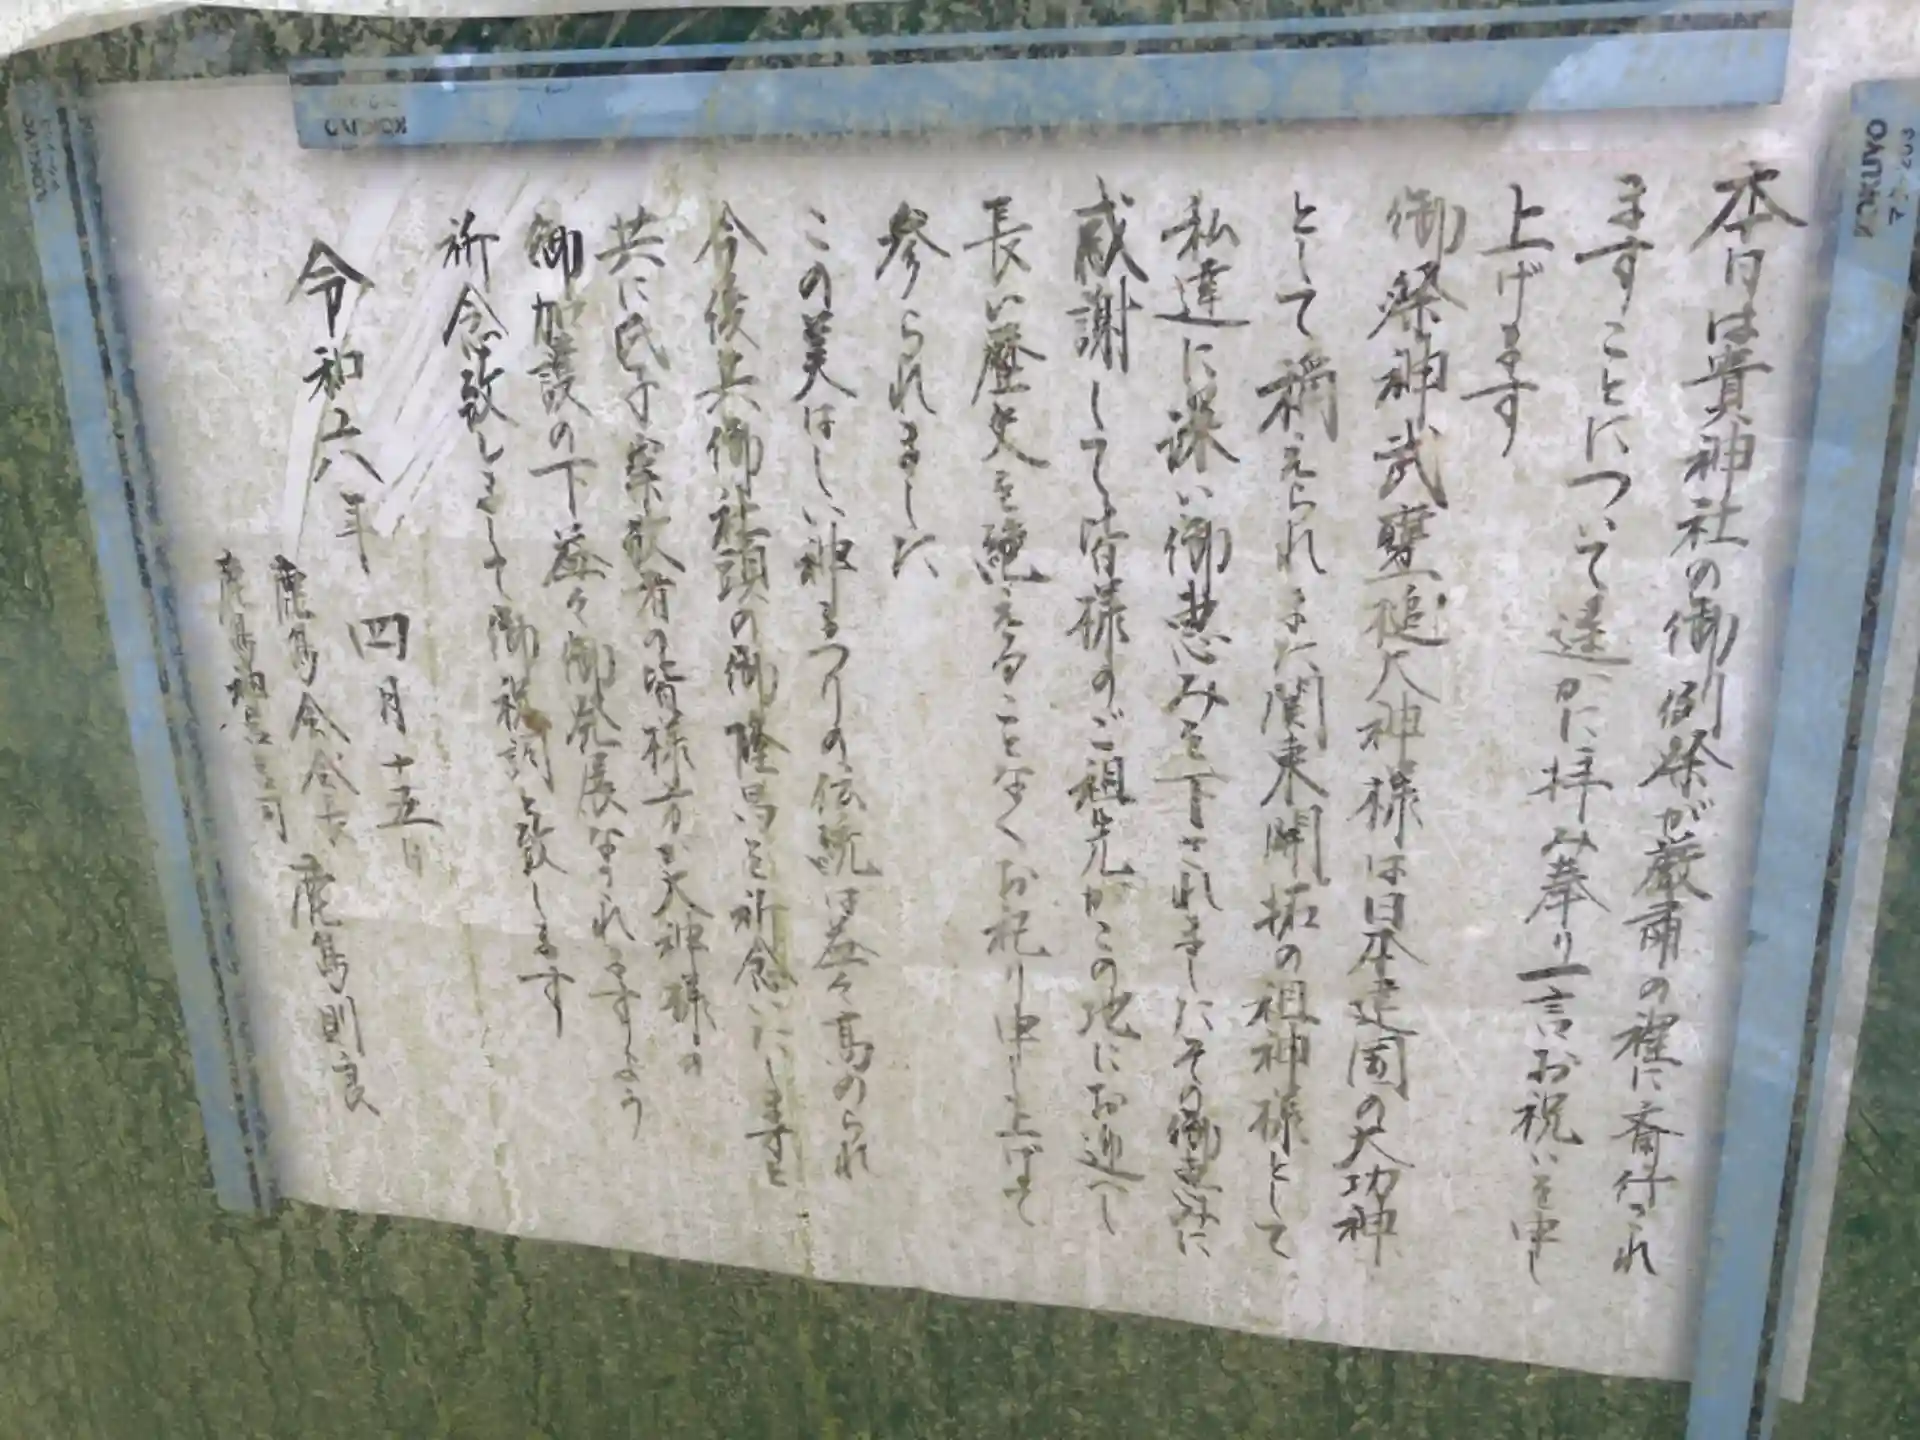 本日は貴神社の御例祭が厳粛の裡に斎行され
ますことについて遥かに拝み奉り一言お祝いを申し
上げます
御祭神武甕槌大神様は日本建国の大功神
として稱えられまた関東開拓の祖神様として
私達に深い御恵みを下されましたその御恵みに
感謝して皆様のご祖先がこの地にお迎へし
長い歴史を絶えることなくお祀り申し上げて
参られました
この美はしい神まつりの伝統は益々高められ
今後共御社頭の御隆昌を祈念いたしますと
共に氏子崇敬者の皆様方が大神様の
御加護の下益々御発展なされますよう
祈念致しまして御祝詞と致します
令和六年 四月十五日
鹿島会会長 鹿島則良
鹿島神宮宮司
KOKUYO
KOKUYO
KOKUYO